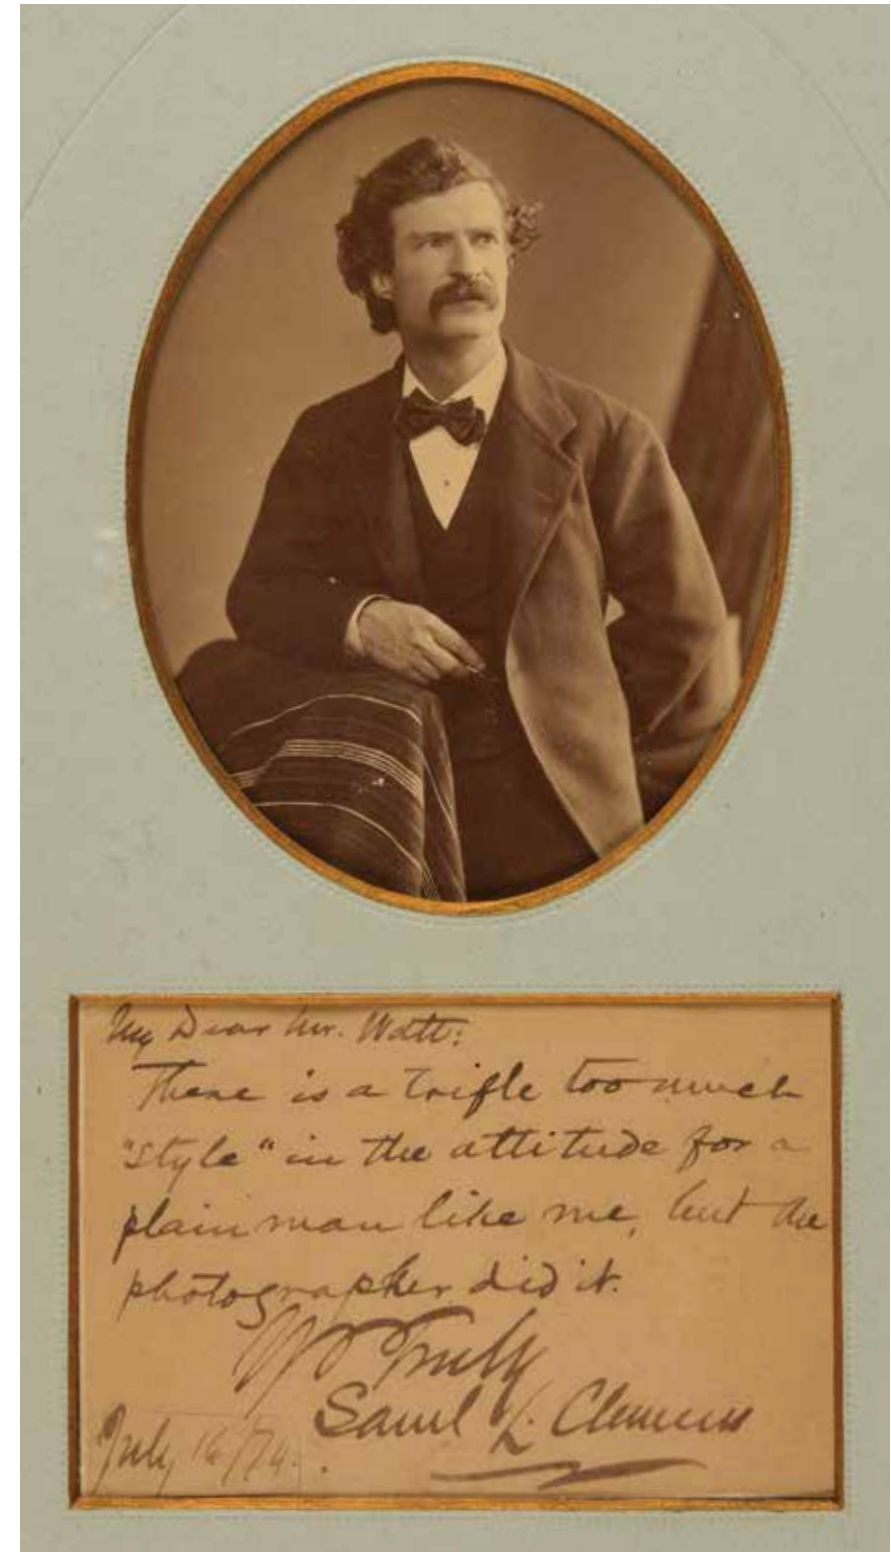 My Dear Mr. Watt:
There is a trifle too much
"style" in the attitude for a
plain man like me, but the
photographer did it.
Yrs Truly
Saml L. Clemens
July 16/74.